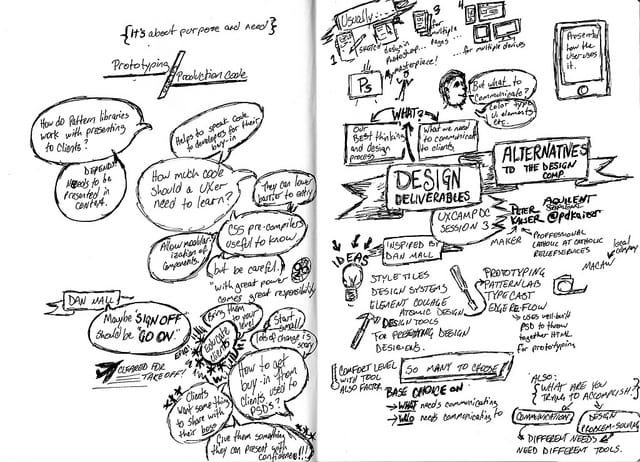 {It's about purpose and need}
Prototyping
Production Code
How do Pattern libraries
work with presenting
to Clients?
DEPENDS
Needs to be
presented in
context.
Helps to speak code
to developers for their
buy-in
How much code
should a UXer
need to learn?
They can lower
barrier to entry
CSS pre-compilers
useful to know,
Allow modular-
ization of
components.
but be careful.
"with great power
comes great responsibility"
DAN MALL
Maybe "SIGN OFF"
should be "GO ON."
CLEARED FOR
TAKEOFF!
Bring them
to your
level
Educate
clients
Start
small!
lots of change is
scary
How to get
buy-in from
Clients used to
PSDs?
Clients
want something
to share with
their boss
Give them something
they can present with
confidence!!!
Usually...
1
SKETCH
design in
Photoshop...
My masterpiece!
3
for
multiple
pages...
4
...for multiple devices
Ps
Presents
how the
user uses
it.
But what to
communicate?
Color, type,
UI elements
etc.
WHAT?
Our
BEST thinking
and design
process
What we need
to communicate
to clients.
ALTERNATIVES
TO THE DESIGN
COMP
DESIGN
DELIVERABLES
UXCAMP DC
SESSION 3
PETER
KAISER
AQUILENT
@pdkaiser
MAKER
PROFESSIONAL
CATHOLIC AT CATHOLIC
RELIEF SERVICES
local
company
MACAW
IDEAS
INSPIRED BY
DAN MALL
STYLE TILES
DESIGN SYSTEMS
ELEMENT COLLAGE
ATOMIC DESIGN
DESIGN TOOLS
FOR PRESENTING DESIGN
DECISIONS.
PROTOTYPING
PATTERN LAB
TYPECAST
EDGE REFLOW
uses well-built
PSD to throw
together HTML
for prototyping
COMFORT LEVEL
WITH TOOL
ALSO FACTOR
SO MANY TO CHOOSE!
BASE CHOICE ON
WHAT needs communicating
WHO needs communicating to
ALSO:
{WHAT ARE YOU
TRYING TO ACCOMPLISH?}
COMMUNICATION
DESIGN
PROBLEM-SOLVING
DIFFERENT NEEDS
NEED DIFFERENT TOOLS.